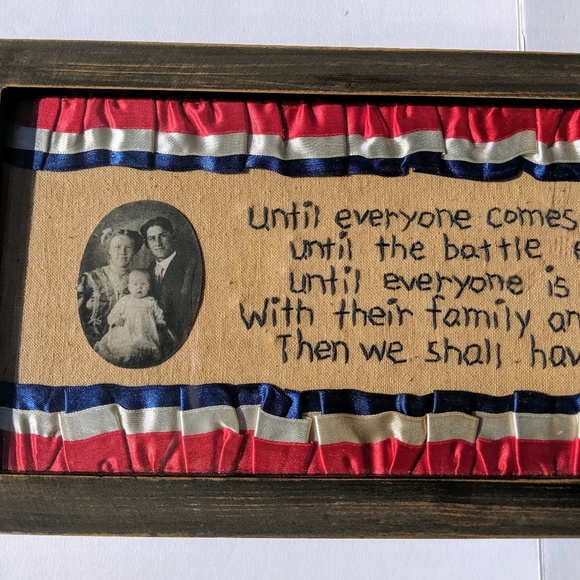 Until everyone comes
until the battle
until everyone is
With their family
Then we shall